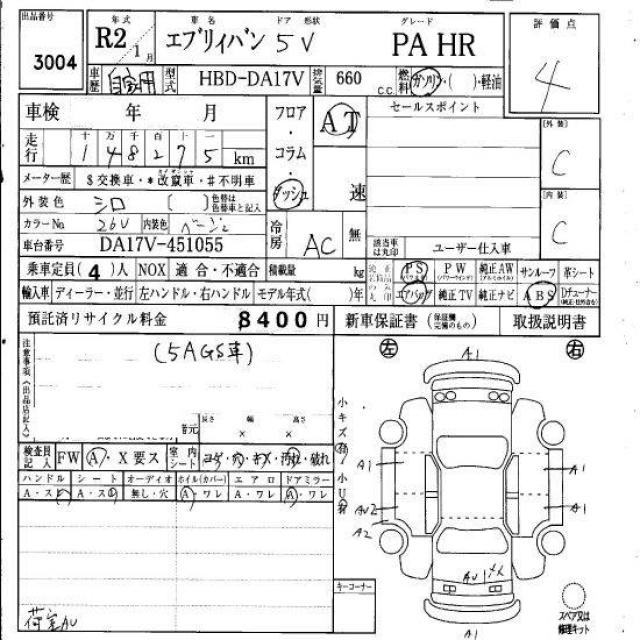 出品番号 3004
年式 R2 1月 車名 エブリィバン ドア 形状 5V グレード PA HR 評価点 4
車歴 自家用 型式 HBD-DA17V 排気量 660 C.C. 燃料 ガソリン・( )・軽油
車検 年 月 フロア・コラム・ダッシュ AT 速 セールスポイント
走行 十 万 千 百 十 一 1 4 8 2 7 5 km
[外装] C
メーター歴 $交換車・*改竄車・#不明車
外装色 シロ ( ) 色替は色替車と記入
[内装] C
カラーNo. 26V 内装色 ベージュ
冷房 AC 無
車台番号 DA17V-451055
該当車は丸印 ユーザー仕入車
乗車定員(4)人 NOX 適合・不適合 積載量 kg
PS (パワステ) PW (パワーウインド) 純正AW (アルミホイル) サンルーフ 革シート
輸入車 ディーラー・並行 左ハンドル・右ハンドル モデル年式( )年
エアバッグ 純正TV 純正ナビ ABS Dチューナー
預託済リサイクル料金 8400円 新車保証書 (保証欄完備のもの) 取扱説明書
注意事項(出品店記入) (5AGS車)
左 右
長さ 幅 高さ
× ×
検査員記入 FW A・X要ス 室内シート コゲ・穴・キズ・汚れ・破れ
ハンドル シート オーディオ ホイル(カバー) エアロ ドアミラー
A・スレ A・スレ 無し・穴 A・ワレ A・ワレ A・ワレ
荷室AU
小キズ 有 小U 有
A1
A1 A1
AU2 A1
A2
AU1 メス
A1
キーコーナー
スペア又は修理キット